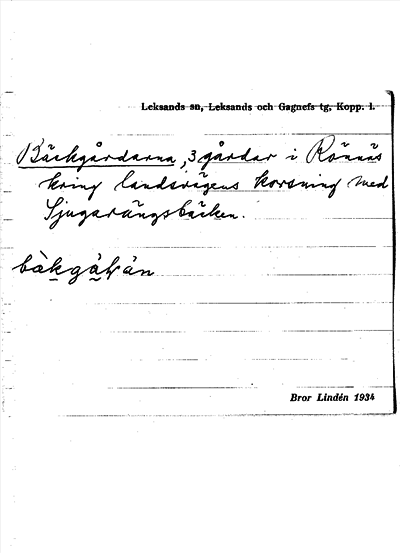 Leksands sn, Leksands och Gagnefs tg, Kopp. l.
Bäckgårdarna, 3 gårdar i Rönnäs
kring landsvägens korsning med
Sjugarängsbäcken.
Bror Lindén 1934